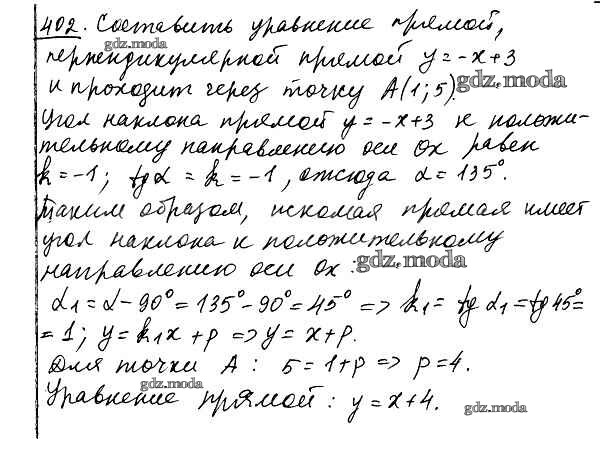 402. Составить уравнение прямой,
gdz.moda
перпендикулярной прямой y = -x+3
gdz.moda
и проходит через точку A(1; 5).
Угол наклона прямой y = -x+3 к положи-
тельному направлению оси Ox равен
k = -1; tg α = k = -1, отсюда α = 135°.
Таким образом, искомая прямая имеет
угол наклона к положительному
направлению оси Ox :
gdz.moda
α₁ = α - 90° = 135° - 90° = 45° => k₁ = tg α₁ = tg 45° =
= 1; y = k₁x + p => y = x+p.
Для точки A : 5 = 1+p => p = 4.
gdz.moda
Уравнение прямой : y = x+4.
gdz.moda